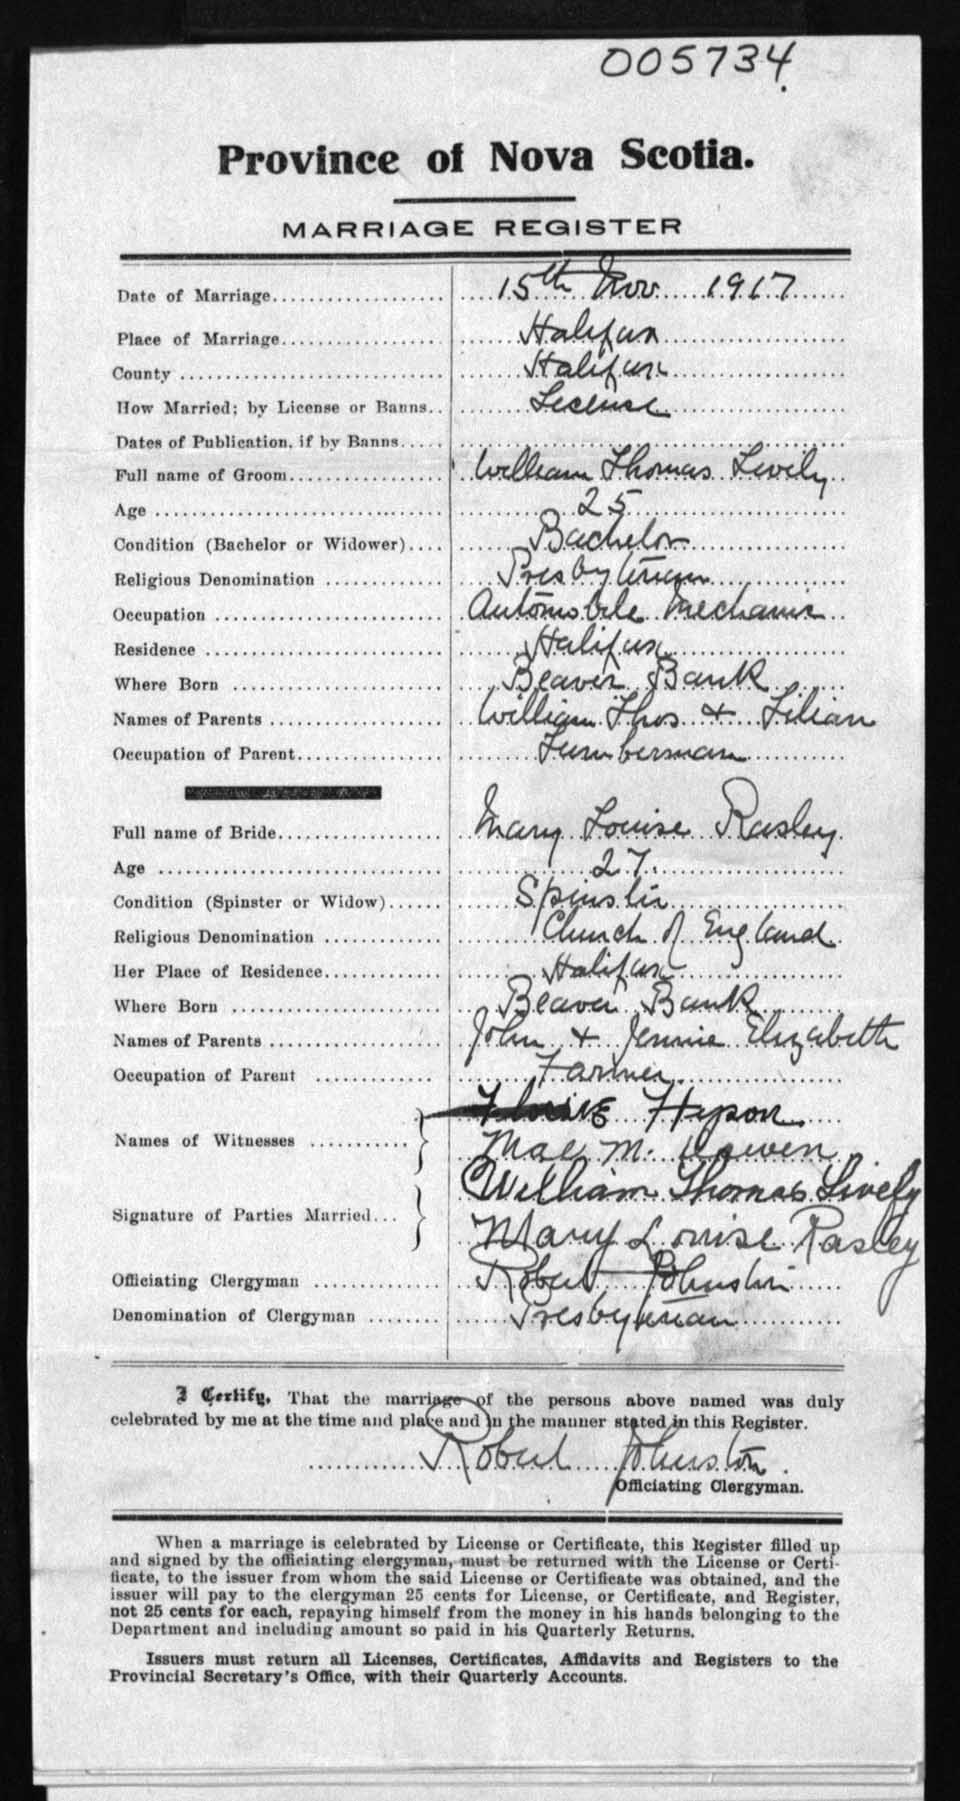 005734
Province of Nova Scotia.
MARRIAGE REGISTER
Date of Marriage 15th Nov 1917
Place of Marriage Halifax
County Halifax
How Married; by License or Banns License
Dates of Publication, if by Banns
Full name of Groom William Thomas Lively
Age 25
Condition (Bachelor or Widower) Bachelor
Religious Denomination Presbyterian
Occupation Automobile Mechanic
Residence Halifax
Where Born Beaver Bank
Names of Parents William Thos + Lilian
Occupation of Parent Lumberman
Full name of Bride Mary Louise Rasley
Age 27
Condition (Spinster or Widow) Spinster
Religious Denomination Church of England
Her Place of Residence Halifax
Where Born Beaver Bank
Names of Parents John + Jennie Elizabeth
Occupation of Parent Farmer
Hyson
Names of Witnesses Mae M.
William Thomas Lively
Signature of Parties Married Mary Louise Rasley
Officiating Clergyman Robert Johnston
Denomination of Clergyman Presbyterian
I Certify, That the marriage of the persons above named was duly
celebrated by me at the time and place and in the manner stated in this Register.
Robert Johnston
Officiating Clergyman.
When a marriage is celebrated by License or Certificate, this Register filled up
and signed by the officiating clergyman, must be returned with the License or Certi-
ficate, to the issuer from whom the said License or Certificate was obtained, and the
issuer will pay to the clergyman 25 cents for License, or Certificate, and Register,
not 25 cents for each, repaying himself from the money in his hands belonging to the
Department and including amount so paid in his Quarterly Returns.
Issuers must return all Licenses, Certificates, Affidavits and Registers to the
Provincial Secretary's Office, with their Quarterly Accounts.